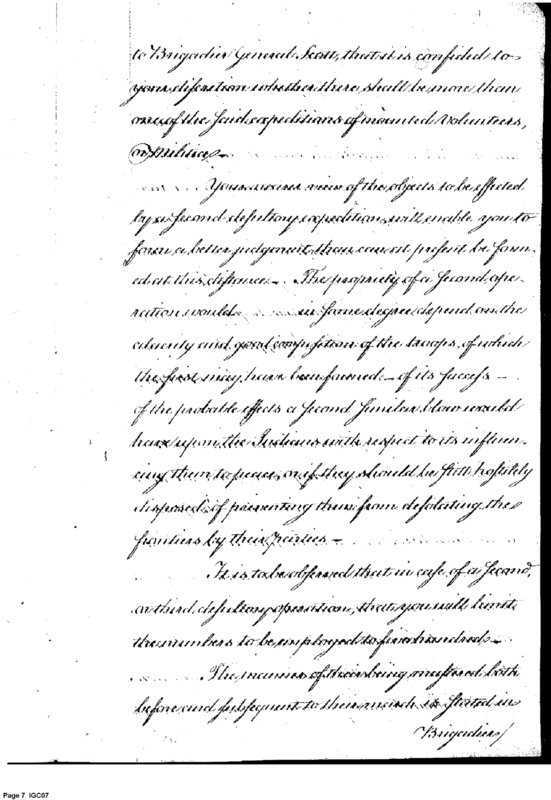 to Brigadier General Scott, that it is confided to
your discretion whether there shall be more than
one of the said expeditions of mounted Volunteers,
or Militia—
Your nearer view of the objects to be effected
by a second desultory expedition, will enable you to
form a better judgement, than can at present be form-
ed at this distance— The propriety of a second ope-
ration would in some degree depend on the
alacrity and good composition of the troops, of which
the first may have been formed— of its success—
of the probable effects a second similar blow would
have upon the Indians with respect to its influen-
cing them to peace, or if they should be still hostilely
disposed, of preventing them from desolating the
frontiers by their parties—
It is to be observed that in case of a second,
or third desultory operation, that you will limit
the numbers to be employed to five hundred—
The manner of their being mustered both
before and subsequent to their march is stated in
Brigadier/
Page 7 IGC07